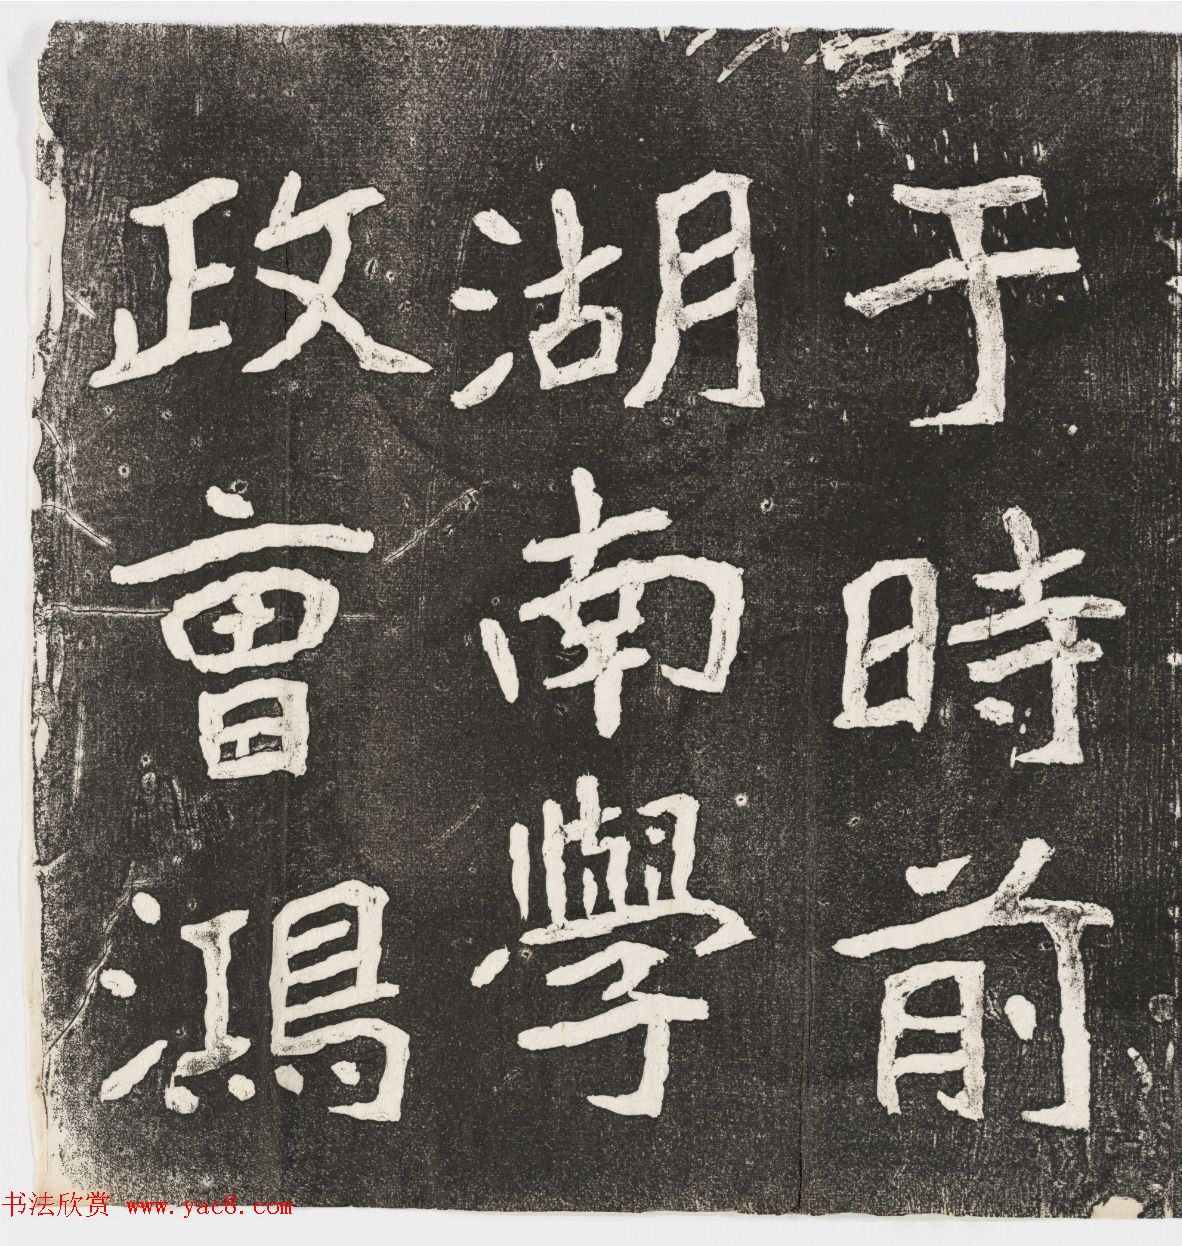 于時前
湖南學
政曾鴻
书法欣赏 www.yac8.com